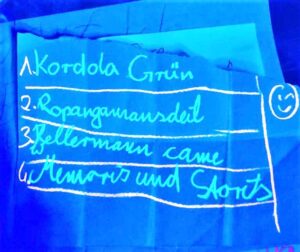 1. Kordola Grün
2. Ropangamansdeil
3. Bellermann came
4. Memoris und Storits